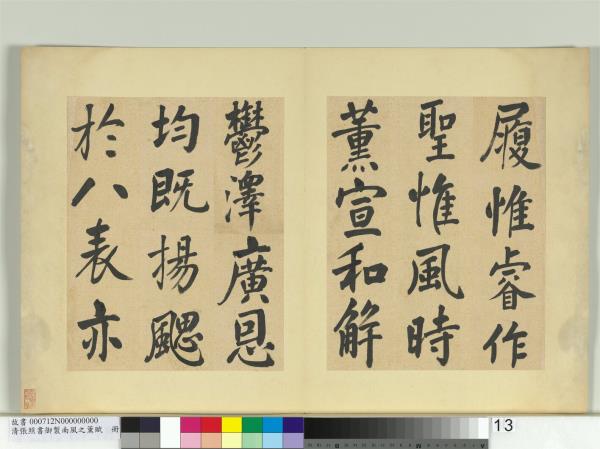 履惟睿作
聖惟風時
薰宣和解
鬱澤廣恩
均既揚颸
於八表亦
故書 000712N000000000
清張照書御製南風之薰賦 冊
13